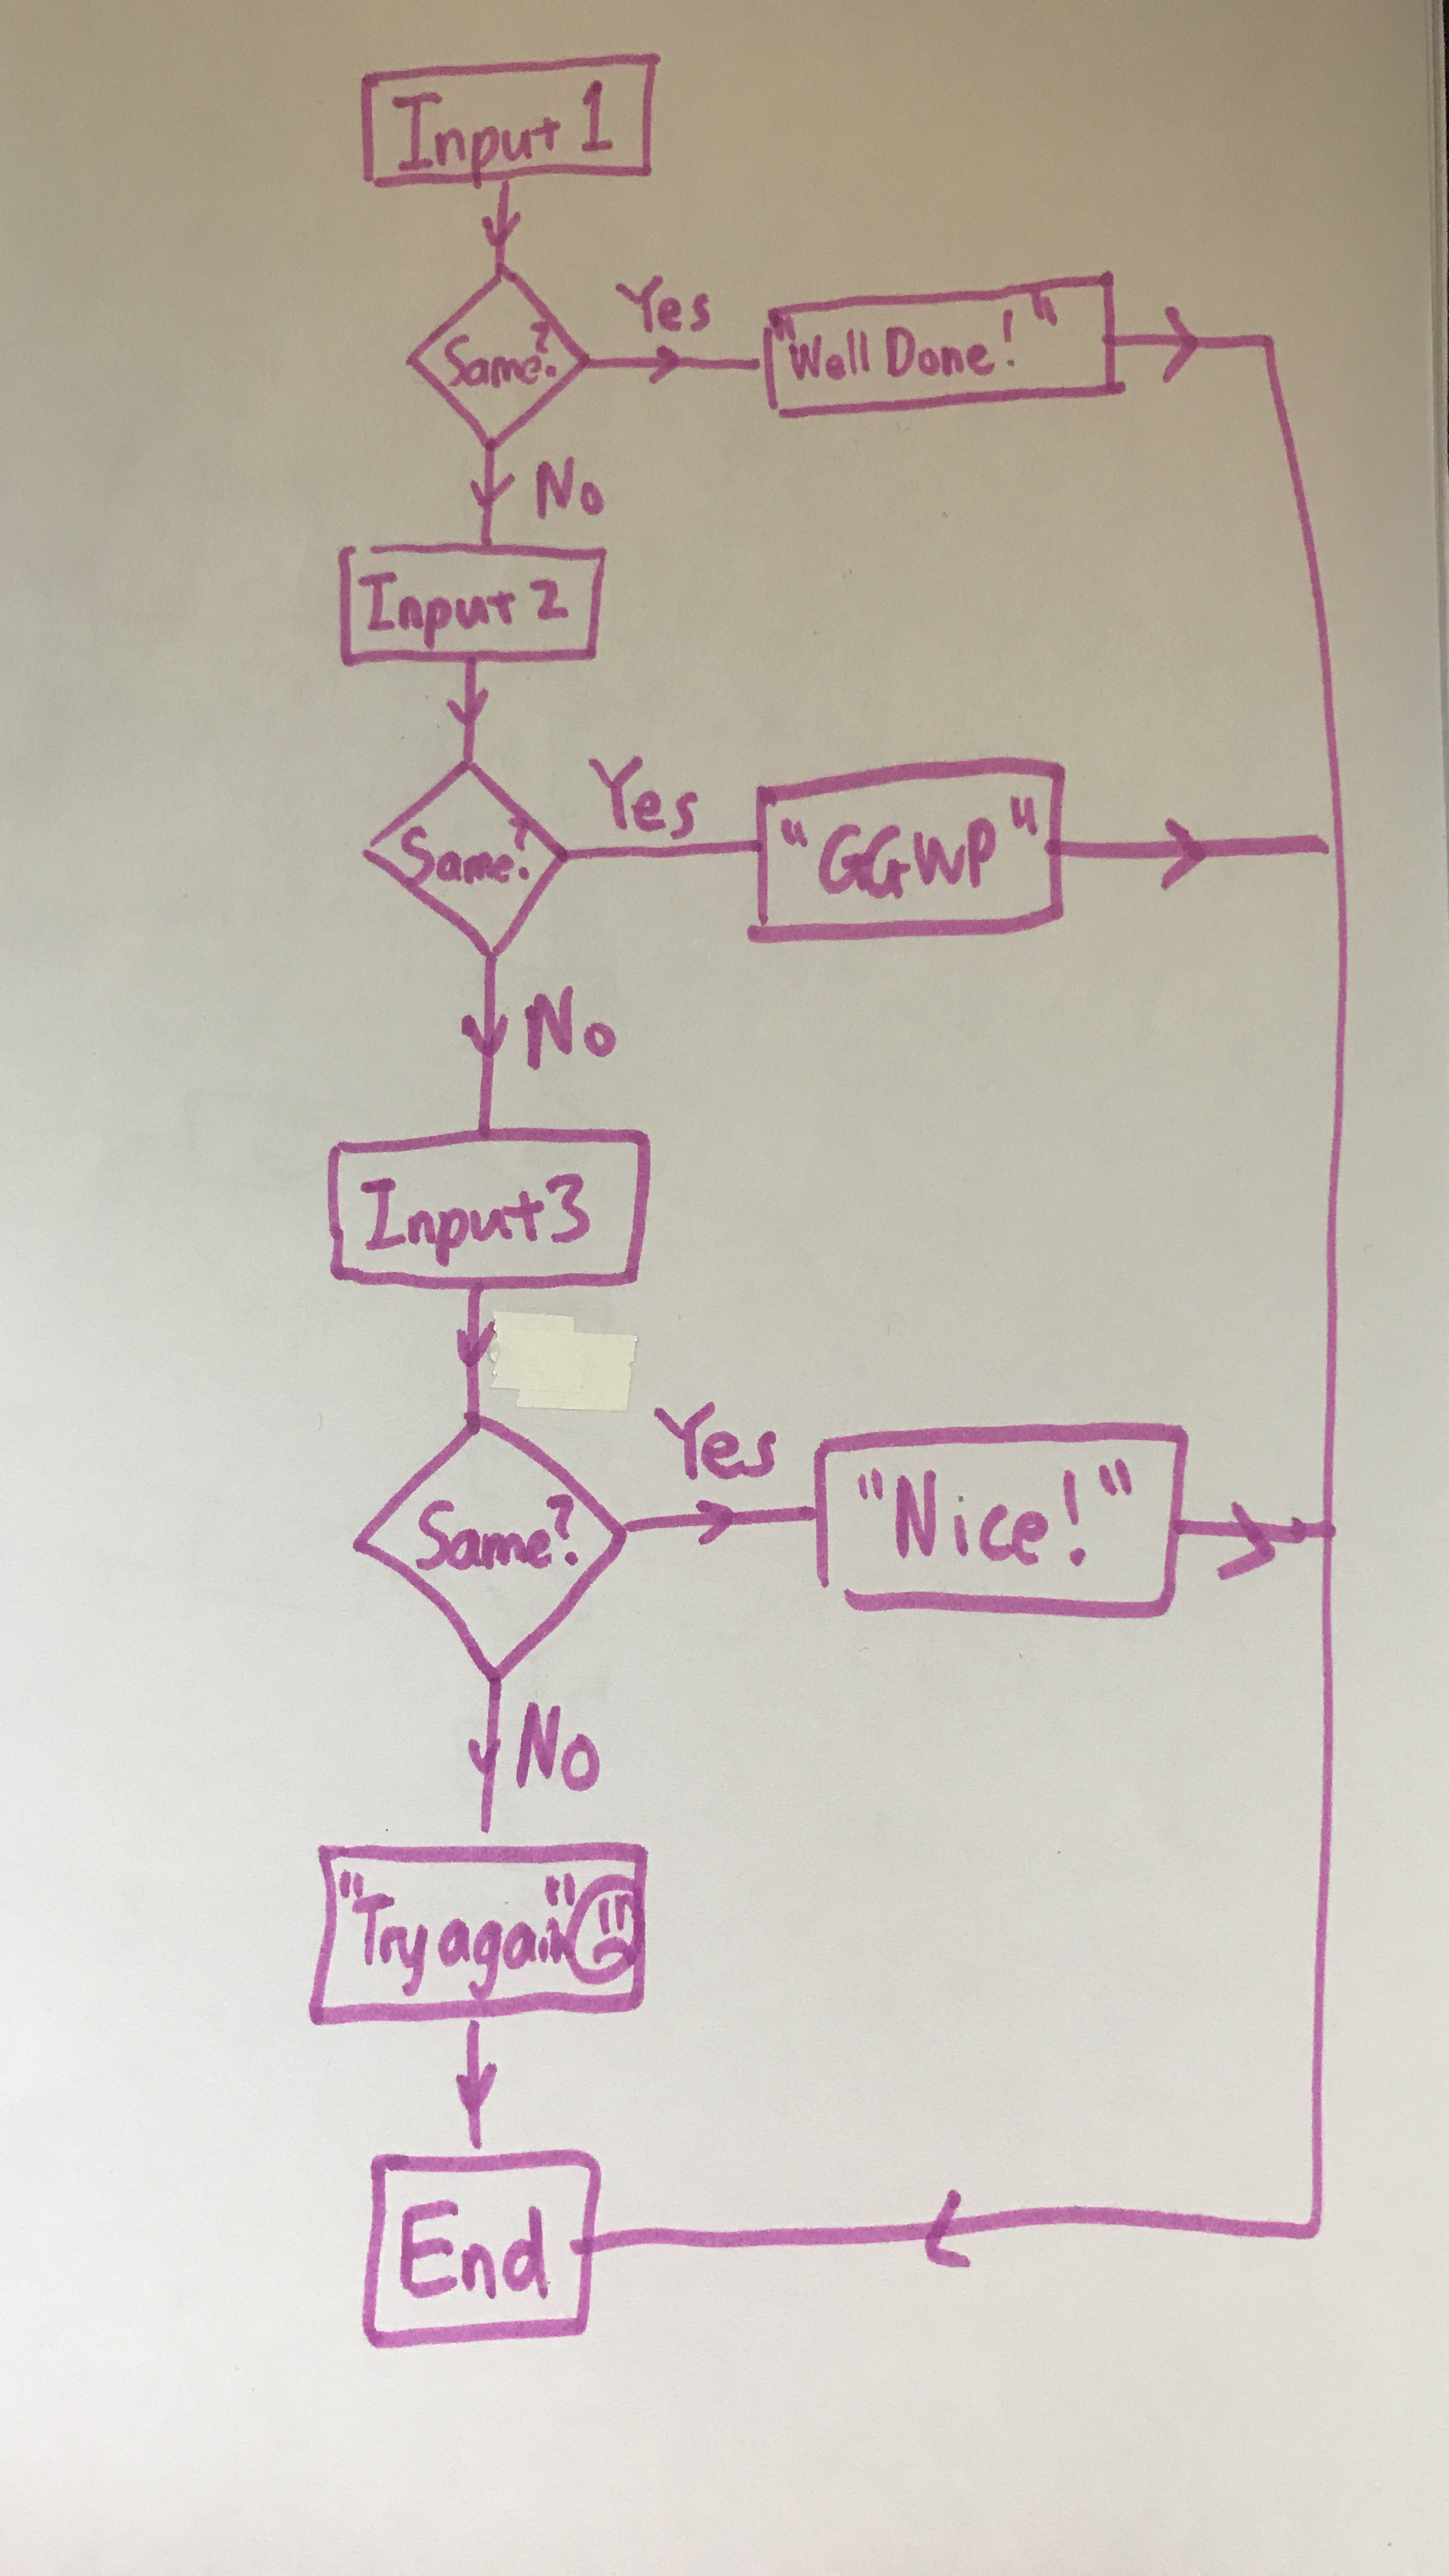 Input 1
Same?
Yes
"Well Done!"
No
Input 2
Same?
Yes
"GGWP"
No
Input 3
Same?
Yes
"Nice!"
No
"Try again"
End